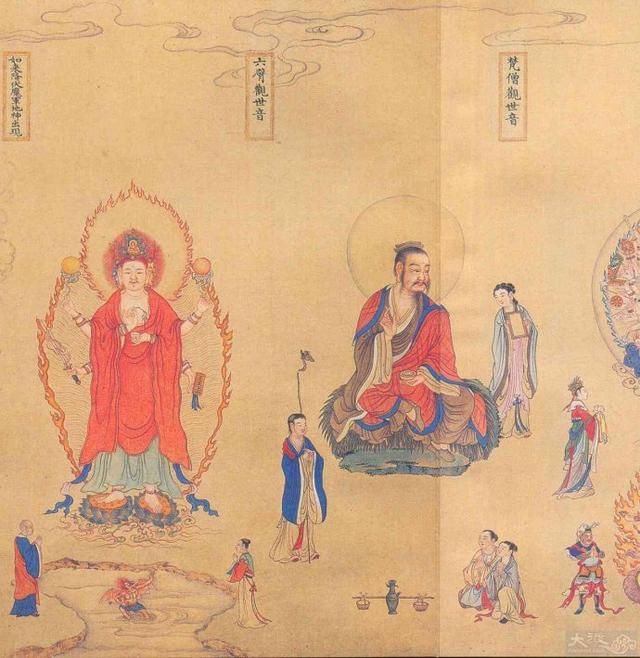 梵僧觀世音
六臂觀世音
如来降伏魔軍地神出現